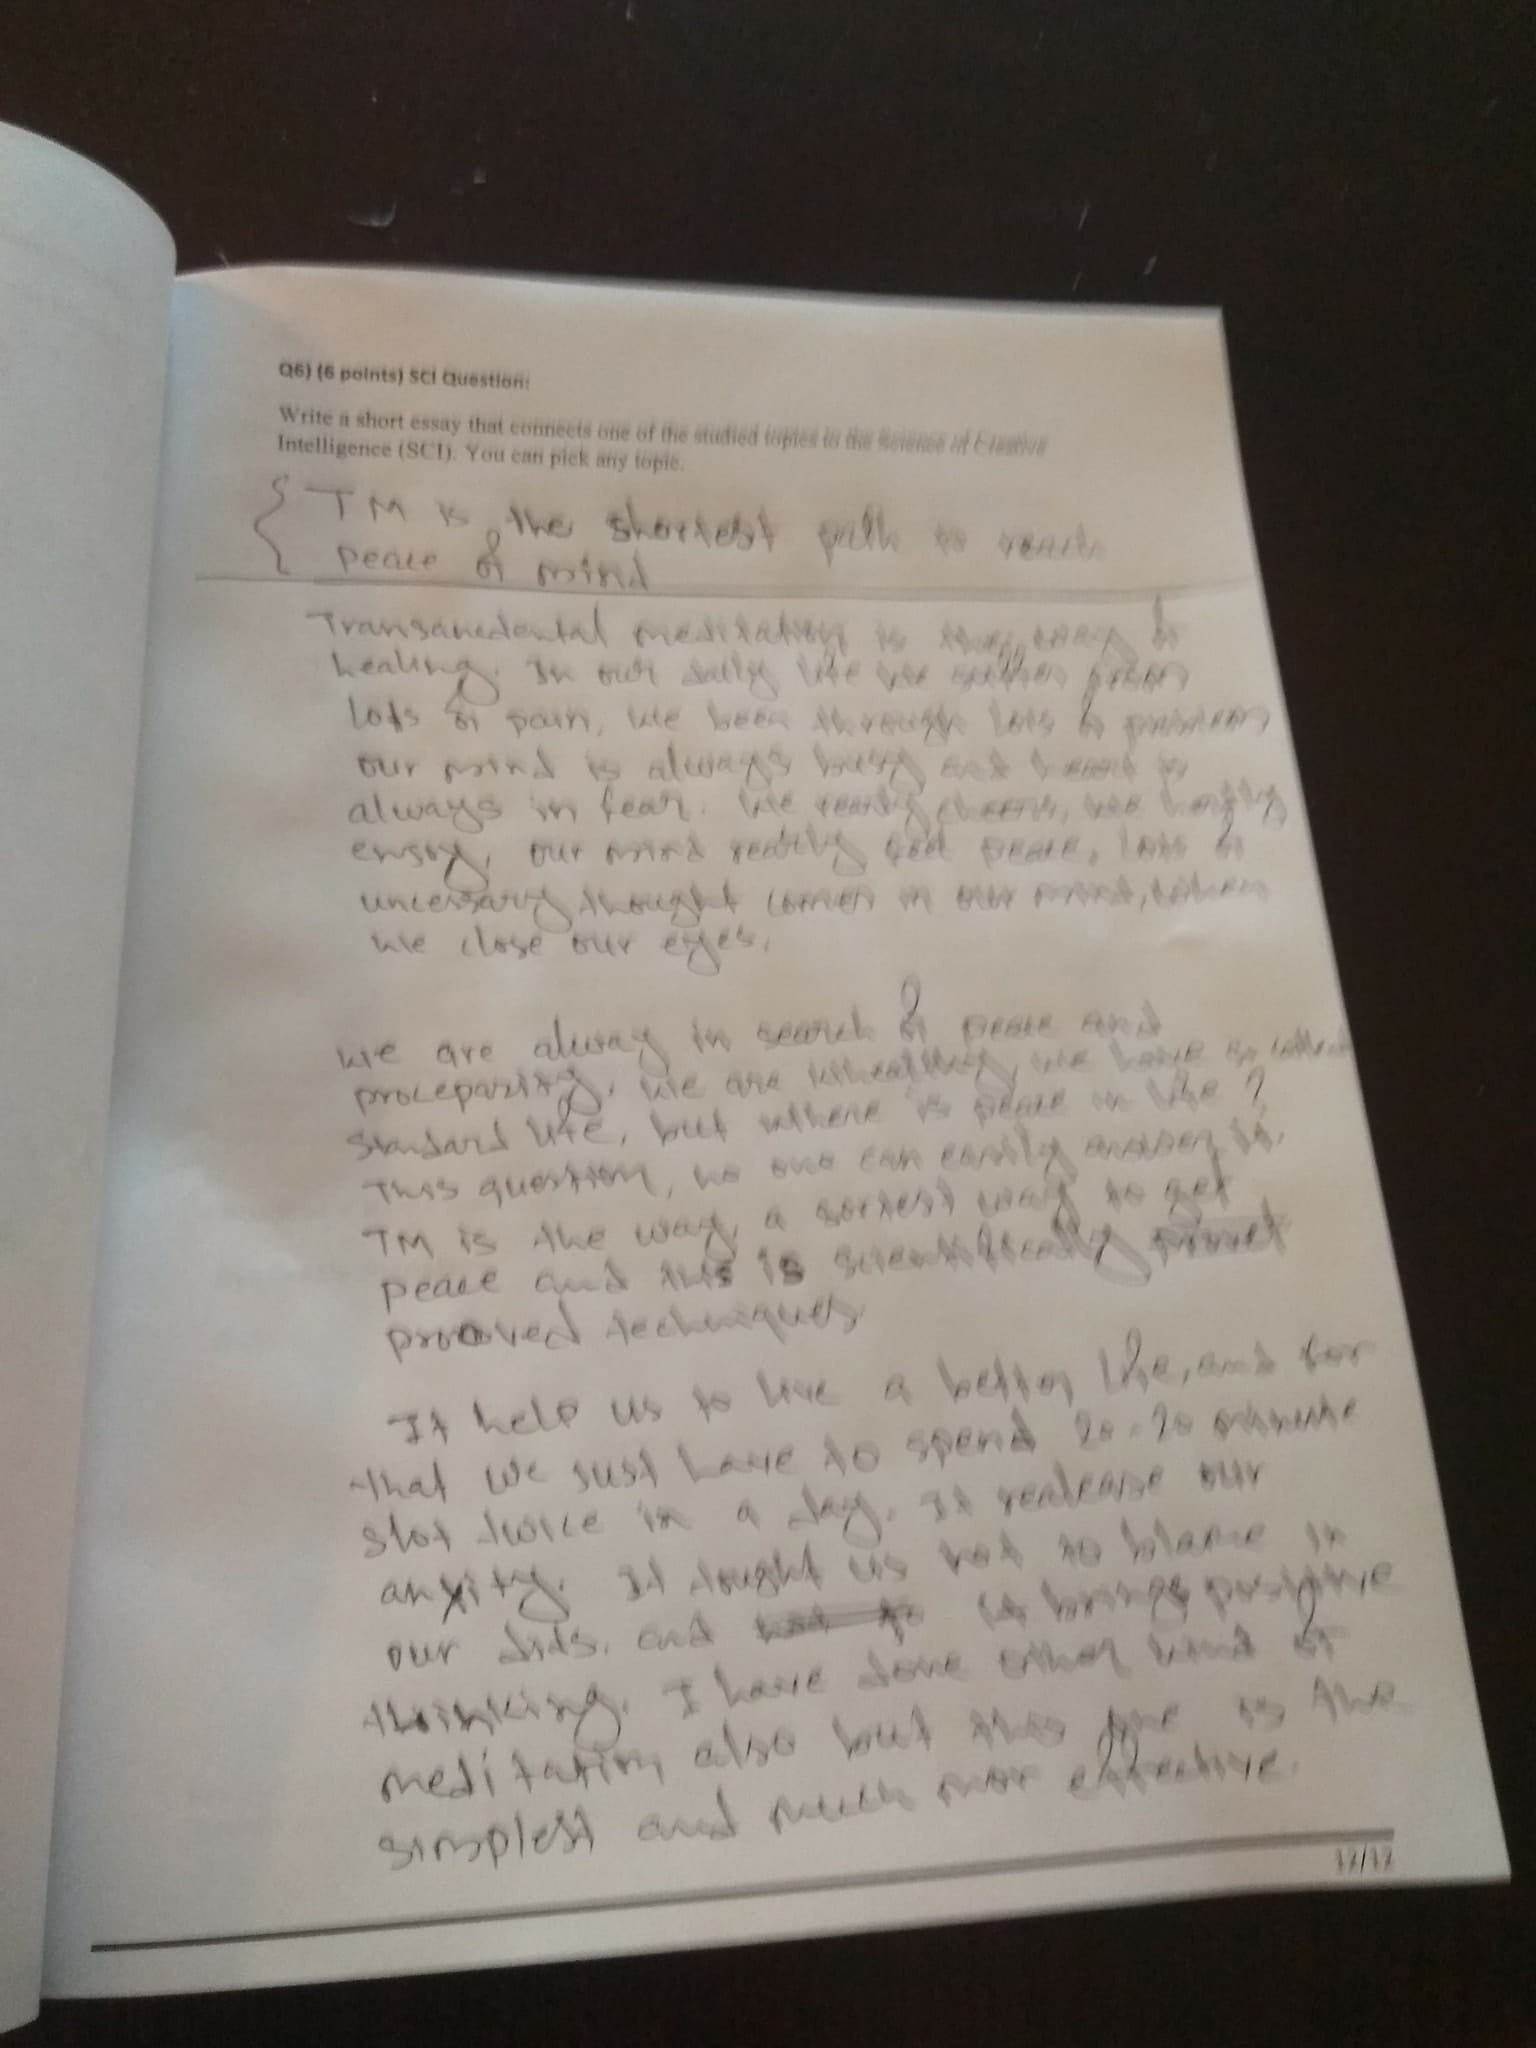 Q6) (6 points) SCI Question:
Write a short essay that connects one of the studied topics to the Science of Creative
Intelligence (SCI). You can pick any topic.
TM is the shortest path to reach
peace of mind
meditation is the way of
healing. In our daily life we suffer from
lots of pain, we been through lots of problem
our mind is always busy and heart is
always in fear. We rearly cheers, we hardly
enjoy, our mind rearly peace, lots of
thought comes in our mind, when
we close our eyes.
we are alway in search of peace and
we are whealthy, we have a
standard life, but where is peace in life?
This question, no one can easily answer it.
TM is the way, a sortest way to get
peace and this is scientifically
prooved techniques
It help us to live a better life, and for
that we just have to spend 20-20 minute
slot twice in a day. It realease our
anxity. It tought us not to blame in
our dids. and it brings positive
thinking. I have done other kind of
meditation also but this one is the
simplest and much mor effective.
12/12